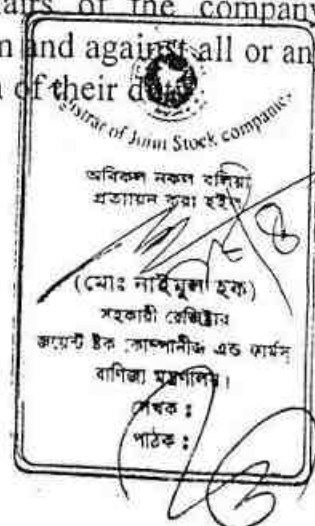 airs of the company
n and against all or an
of their d
gistrar of Joint Stock companies
অবিকল নকল বলিয়া
প্রত্যায়ন করা হইল
(মোঃ নাইমুল হক)
সহকারী রেজিষ্ট্রার
জয়েন্ট ষ্টক কোম্পানীজ এন্ড ফার্মস্
বাণিজ্য মন্ত্রণালয়।
লেখক :
পাঠক :